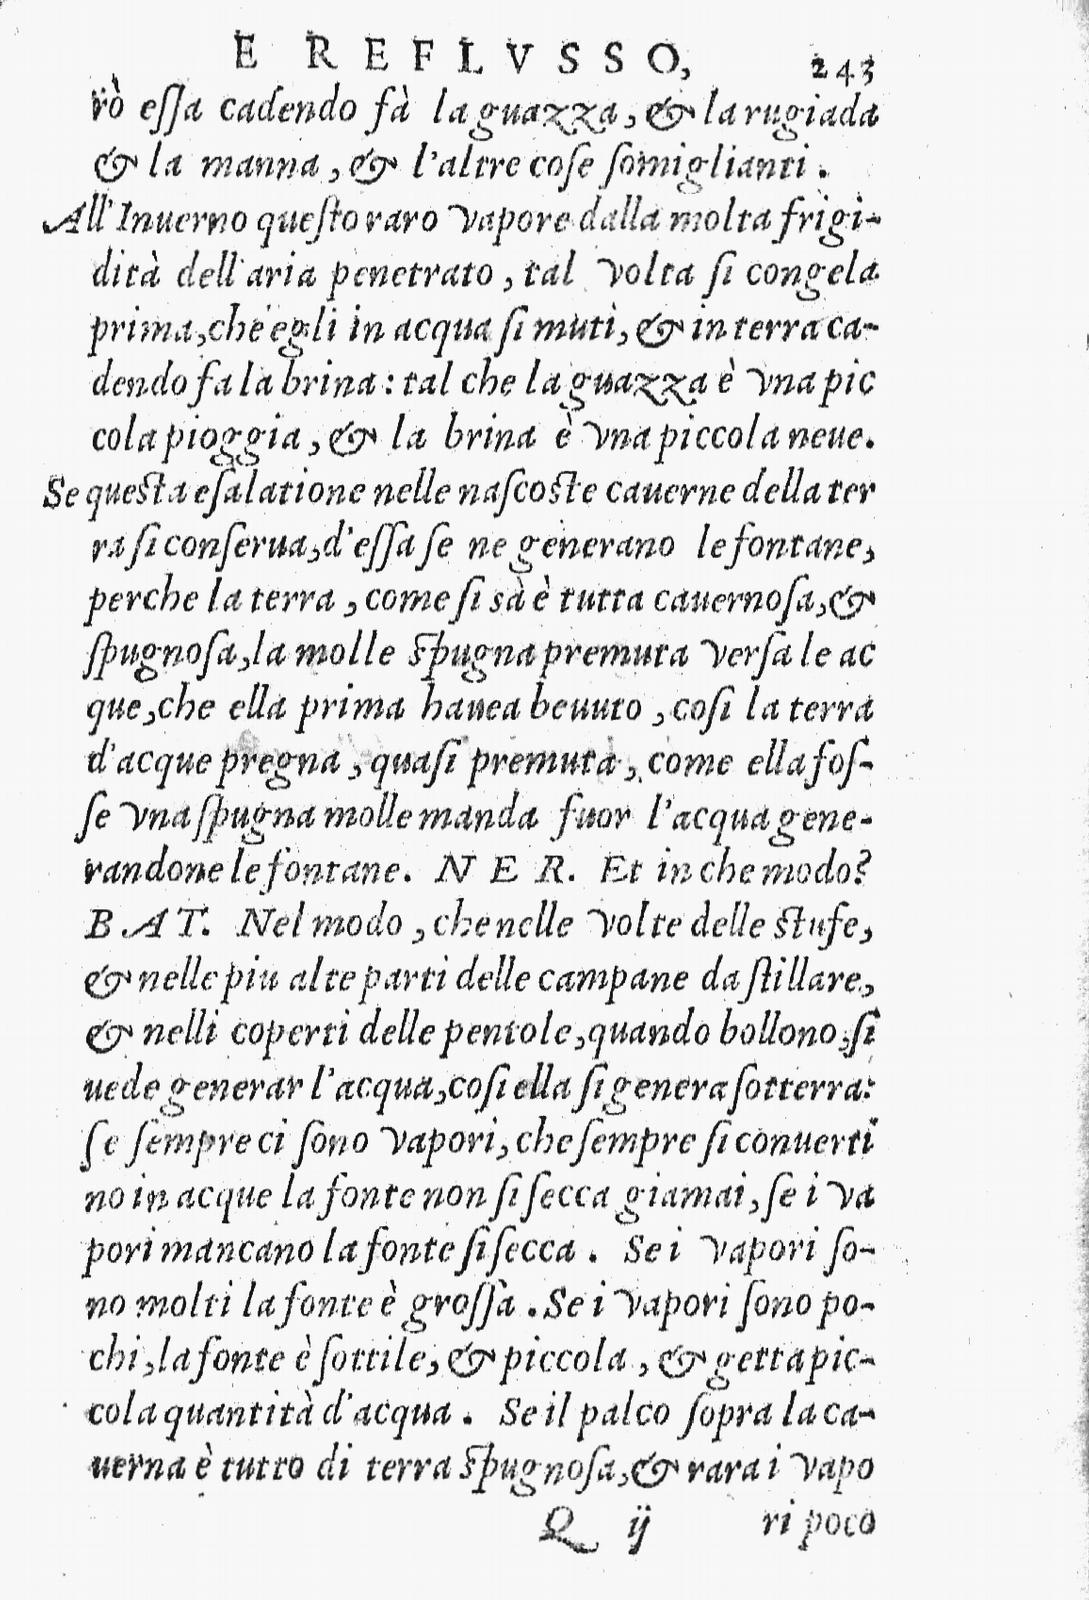 E REFLVSSO, 243
rò eſſa cadendo fà la guazza, & la rugiada
& la manna, & l'altre coſe ſomiglianti.
All'Inuerno queſto raro vapore dalla molta frigi-
dità dell'aria penetrato, tal volta ſi congela
prima, che egli in acqua ſi muti, & in terra ca-
dendo fa la brina: tal che la guazza è vna pic
cola pioggia, & la brina è vna piccola neue.
Se queſta eſalatione nelle naſcoſte cauerne della ter
ra ſi conſerua, d'eſſa ſe ne generano le fontane,
perche la terra, come ſi sà è tutta cauernoſa, &
ſpugnoſa, la molle ſpugna premuta verſa le ac
que, che ella prima hauea beuuto, coſi la terra
d'acque pregna, quaſi premuta, come ella foſ-
ſe vna ſpugna molle manda fuor l'acqua gene-
randone le fontane. NER. Et in che modo?
BAT. Nel modo, che nelle volte delle ſtufe,
& nelle piu alte parti delle campane da ſtillare,
& nelli coperti delle pentole, quando bollono, ſi
uede generar l'acqua, coſi ella ſi genera ſotterra:
ſe ſempre ci ſono vapori, che ſempre ſi conuerti
no in acque la fonte non ſi ſecca giamai, ſe i va
pori mancano la fonte ſi ſecca. Se i vapori ſo-
no molti la fonte è groſſa. Se i vapori ſono po-
chi, la fonte è ſottile, & piccola, & getta pic-
cola quantità d'acqua. Se il palco ſopra la ca-
uerna è tutto di terra ſpugnoſa, & rara i vapo
Q ij ri poco